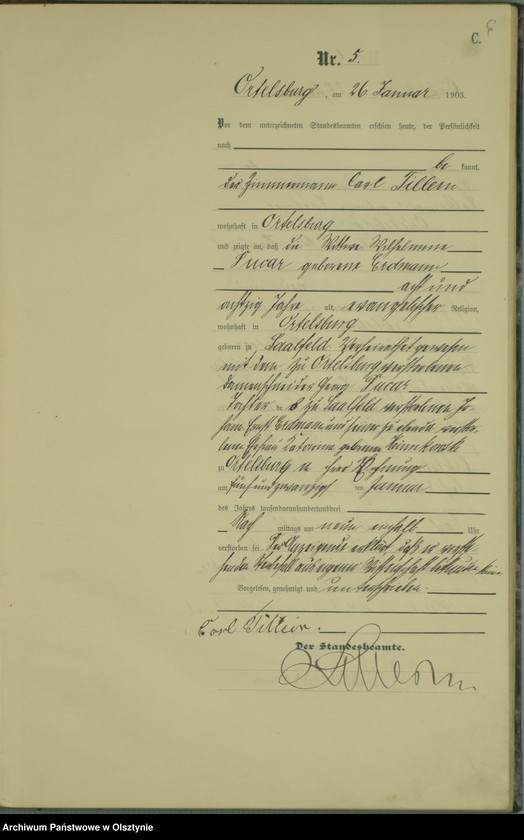 C.
Nr. 5.
Ortelsburg, am 26 Januar 1903.
Vor dem unterzeichneten Standesbeamten erschien heute, der Persönlichkeit
nach
be kannt,
der Zimmermann Carl Tillein
wohnhaft in Ortelsburg
und zeigte an, daß die Witwe Wilhelmine
geborene Erdmann
acht und
achtzig Jahre alt, evangelischer Religion,
wohnhaft in Ortelsburg
geboren zu Saalfeld Verheirathet gewesen
mit dem zu Ortelsburg verstorbenen
Damenschneider Georg
Tochter des zu Saalfeld verstorbenen Jo-
hann Ernst Erdmann und seiner
geborenen
zu Ortelsburg in ihrer Wohnung
am fünfundzwanzigsten Januar
des Jahres tausendneunhundertunddrei
Nach mittags um neun einhalb Uhr
verstorben sei. Der Anzeigende erklärt, daß er
aus eigener Wissenschaft
Vorgelesen, genehmigt und unterschrieben.
Carl Tillein.
Der Standesbeamte.
Archiwum Państwowe w Olsztynie